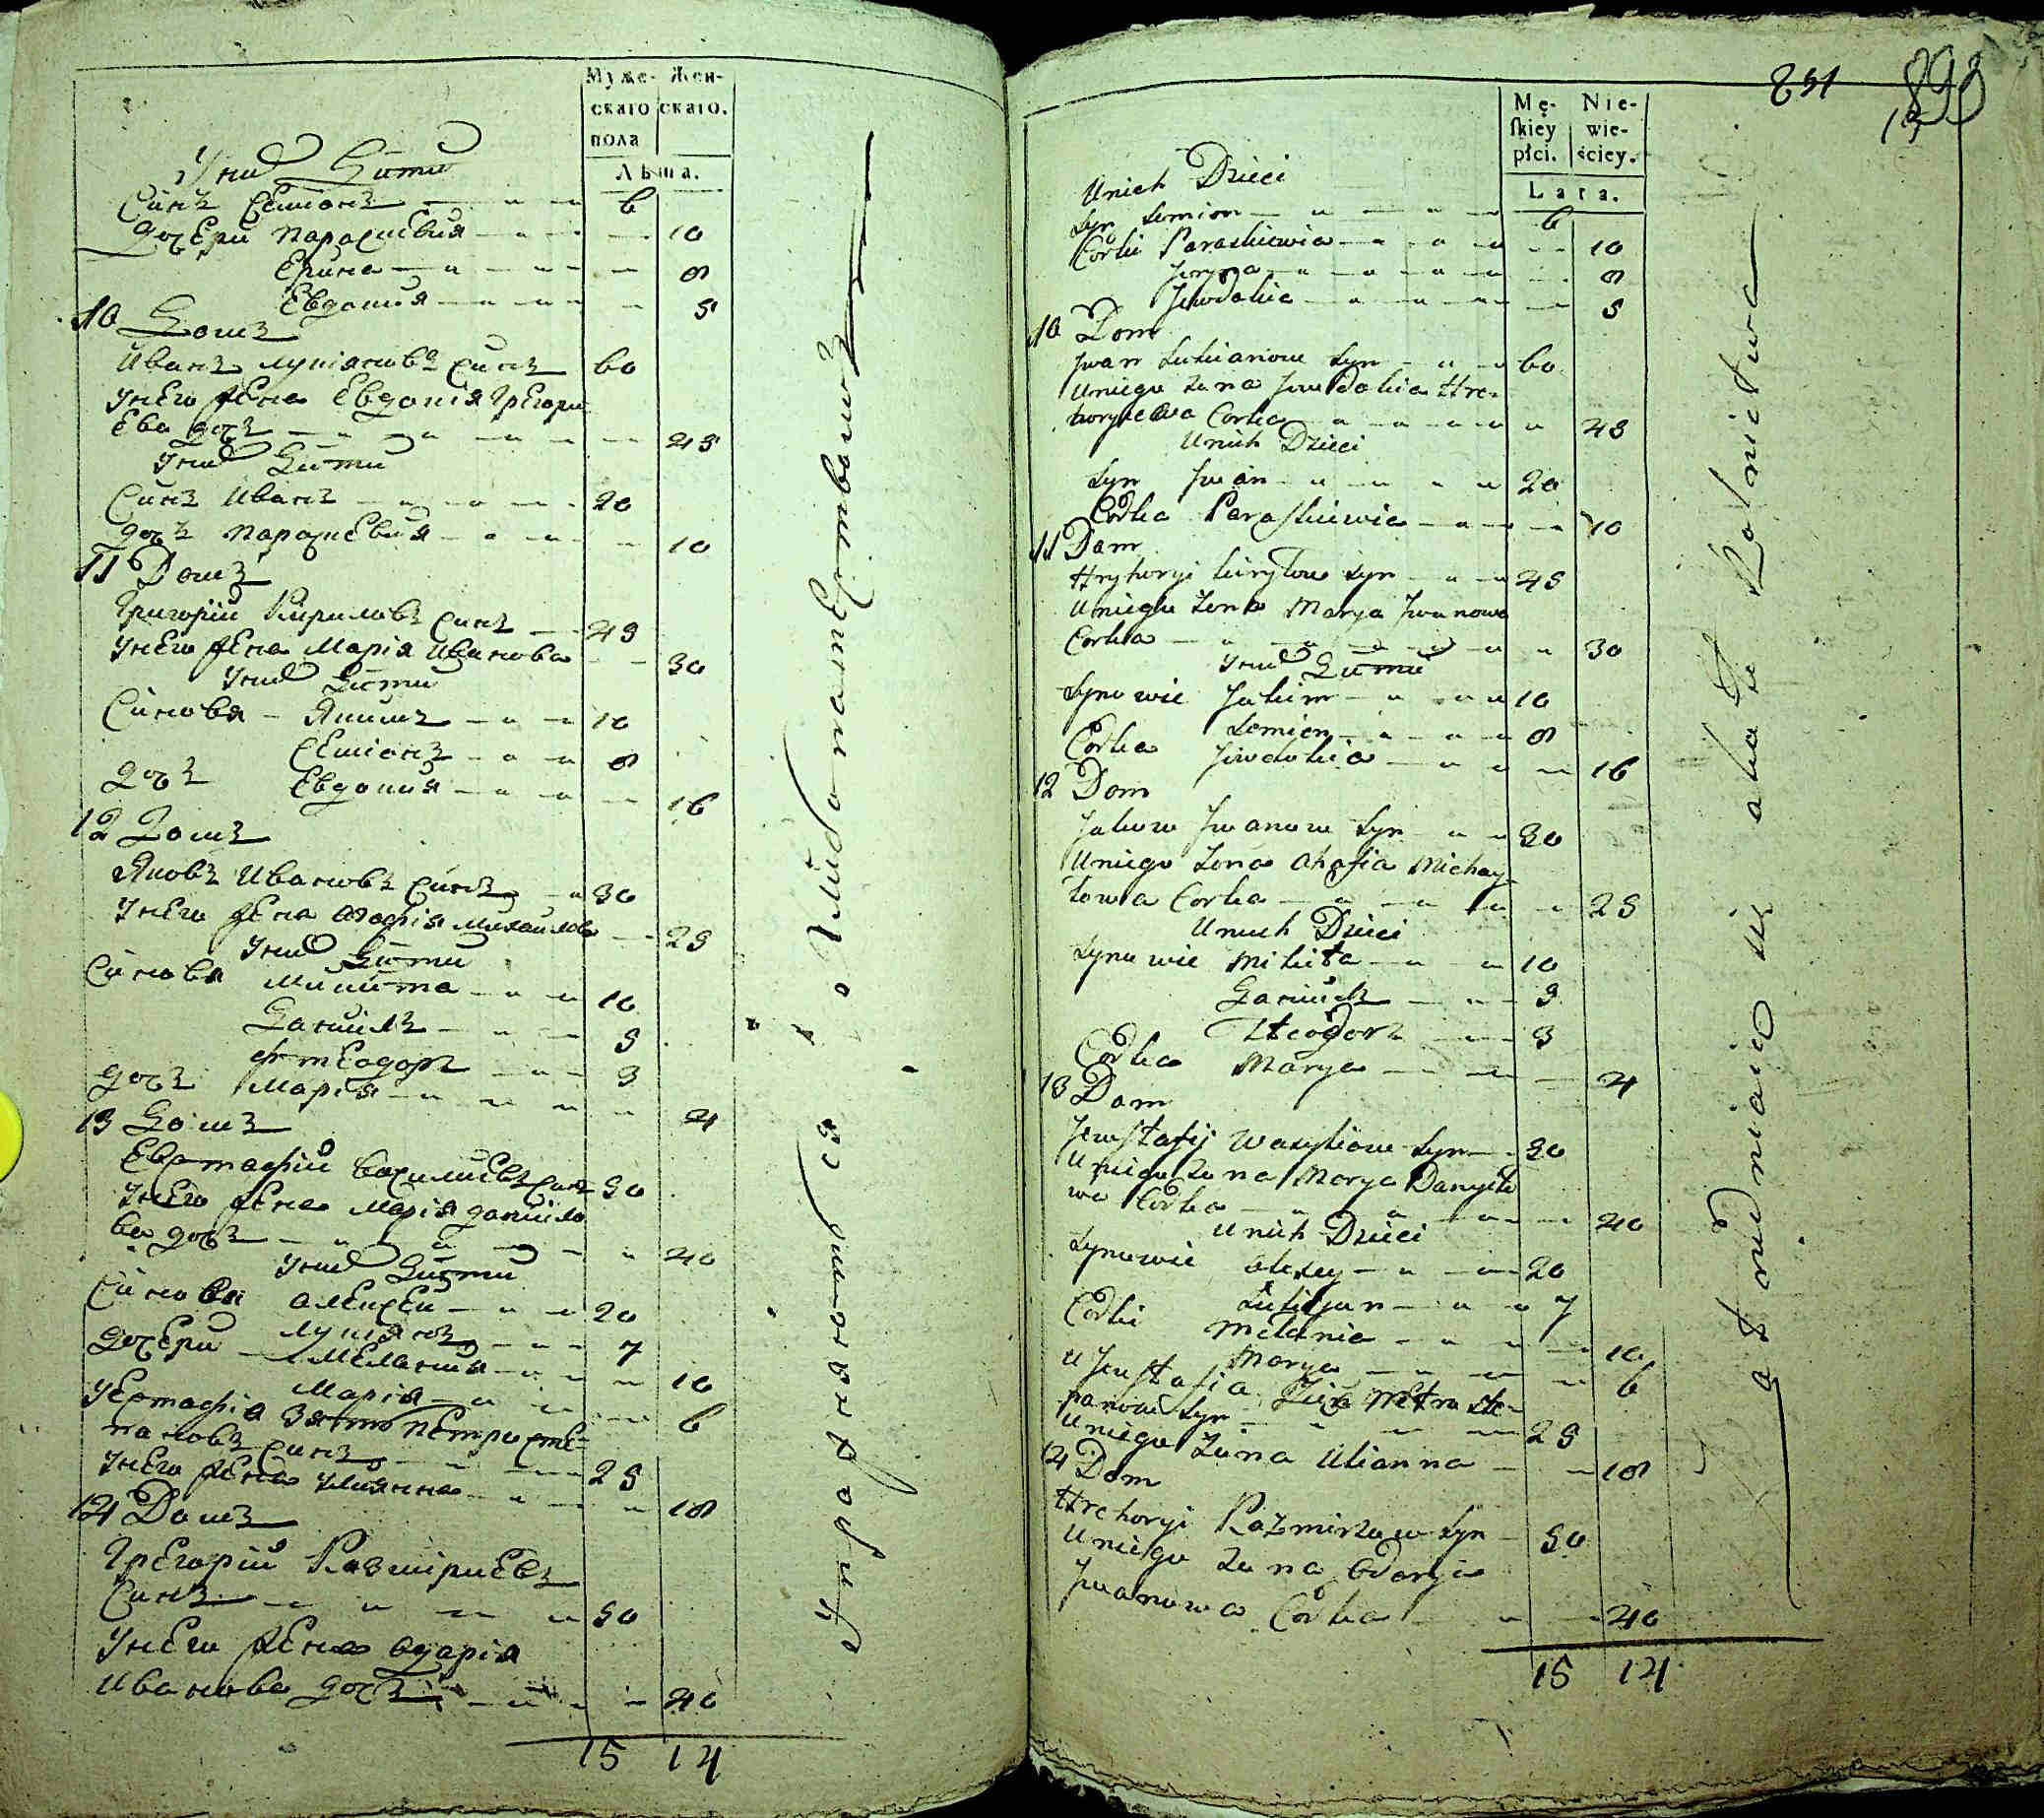 Муже- Жен-
скаго скаго.
пола
Лѣта.
У них Дѣти
Синъ Семіонъ 6
Дочери Параскевия 10
Ерина 8
Евдокия 5
10 Домъ
Иванъ Лукіяновъ Синъ 60
У него жена Евдокія Грегори-
ева дочъ 45
У них Дѣти
Синъ Иванъ 20
дочъ Параскевия 10
11 Домъ
Григорій Кириловъ Синъ 45
У него жена Марія Иванова 30
У них Дѣти
Синовя Якимъ 10
Семіонъ 8
дочъ Евдокия 16
12 Домъ
Яковъ Ивановъ Синъ 30
У него жена Агафія Михаилова 25
У них Дѣти
Синовя Микита 10
Данъилъ 5
Фтеодоръ 3
дочъ Марія 4
13 Домъ
Евстафий Василиевъ Синъ 50
У него жена Марія Данъило
ва дочъ 40
У них Дѣти
Синовя Алексей 20
Лукіянъ 7
дочери Мелания 10
Марія 6
У Естафія Зять Петри Сте-
пановъ Синъ 25
У него жена Улиянна 18
14 Домъ
Грегорій Казмириевъ
Синъ 50
У него жена Одарія
Иванова дочъ 40
15 14
Упражняются хлѣбопашествомъ
851 893
Mę- Nie-
skiey wie-
płci. ściey.
Lata.
U nich Dzieci
Syn Semion 6
Corki Paraskiewia 10
Jeryna 8
Jewdokia 5
10 Dom
Jwan Lukianow Syn 60
U niego Zona Jewdokia Hre-
horyiewa Corka 45
U nich Dzieci
Syn Jwan 20
Corka Paraskiewia 10
11 Dom
Hryhoryi Kiryłow Syn 45
U niego Zona Marya Jwanowa
Corka 30
У них Дѣти
Synowie Jakim 10
Semion 8
Corka Jewdokia 16
12 Dom
Jakow Jwanow Syn 30
U niego Zona Ahafia Michay-
łowa Corka 25
U nich Dzieci
Synowie Mikita 10
Данъилъ 5
Hteodor 3
Corka Marya 4
13 Dom
Jewstafij Wasyliow Syn 50
U niego Zona Marya Danyło
wa Corka 40
U nich Dzieci
Synowie Alexey 20
Lukijan 7
Corki Melania 10
Marya 6
U Jewstafia Zięć Petro Ste-
panow Syn 25
U niego Zona Ulianna 18
14 Dom
Hrehoryi Kazmirzow Syn 50
U niego Zona Odarja
Jwanowa Corka 40
15 14
zatrudniaią się około Rolnictwa